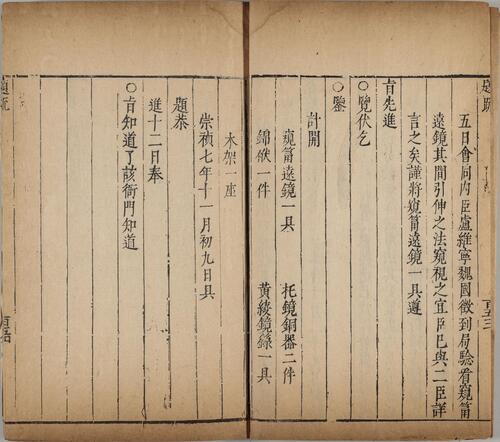 五日會同內臣盧維寧魏國徵到局驗看窺筩
遠鏡其間引伸之法窺視之宜臣已與二臣詳
言之矣謹將窺筩遠鏡一具遵
旨先進
○覽伏乞
○鑒
計開
窺筩遠鏡一具　托鏡銅器二件
錦袱一件　黃綾鏡籙一具
木架一座
崇禎七年十一月初九日具
題恭
進十二日奉
○旨知道了該衙門知道
題疏